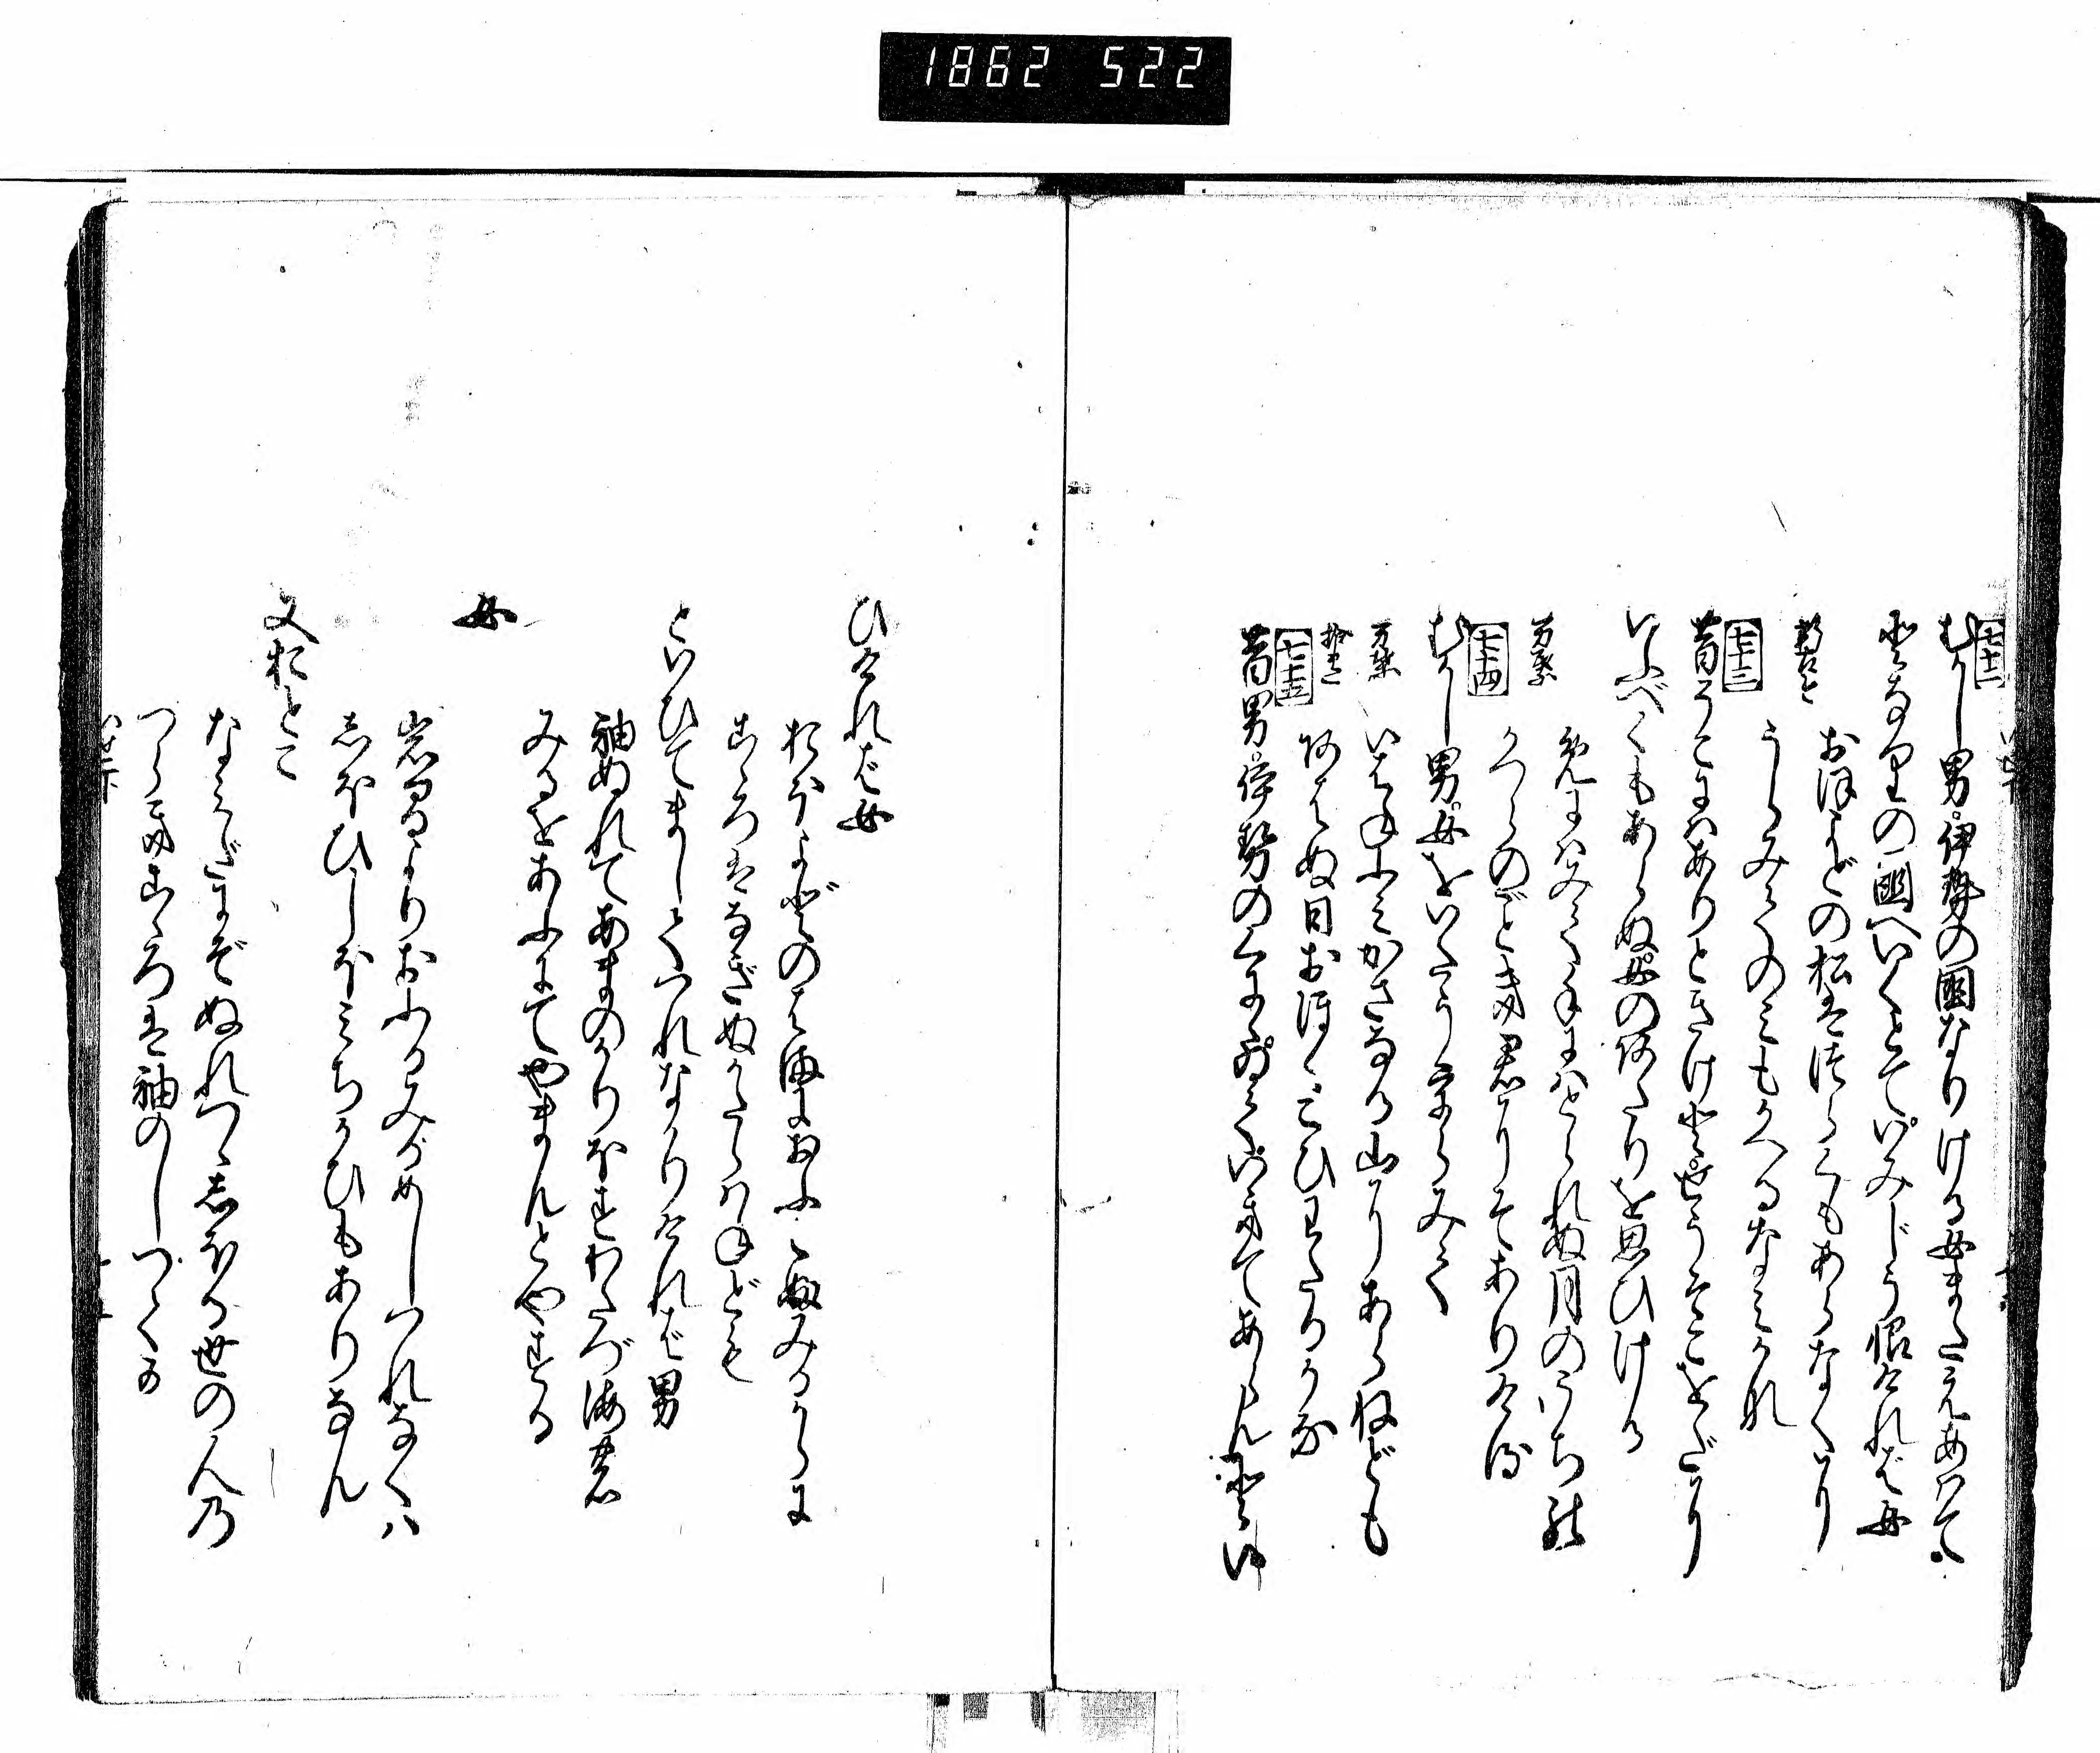 1862 522
七十二
むかし男伊勢の国なりける女またえあはで
となりの国へいくとていみじう恨ければ女
新古今
おほよどの松はつらくもあらなくに
うらみてのみもかへるなみかな
七十三
昔そこにはありときけどせうそこをだに
いふべくもあらぬ女のあたりを思ひける
万葉
めにはみて手にはとられぬ月のうちの
かつらのごとき君にぞありける
七十四
むかし男女をいたううらみて
万葉
いはねふみかさなる山にあらねども
拾遺
あはぬ日おほくこひわたるかな
七十五
昔男伊勢の国にゐていきてあらんとい
ひければ女
おほよどのはまにおふてふみるからに
こゝろはなぎぬかたらはねども
といひてましてつれなかりければ男
袖ぬれてあまのかりほすわたづ海の
みるをあふにてやまんとやする
女
岩間よりおふるみるめしつれなくは
しほひしほみちかひもありなん
又おとこ
なみだにぞぬれつゝしぼる世の人の
つらきこゝろは袖のしづくか